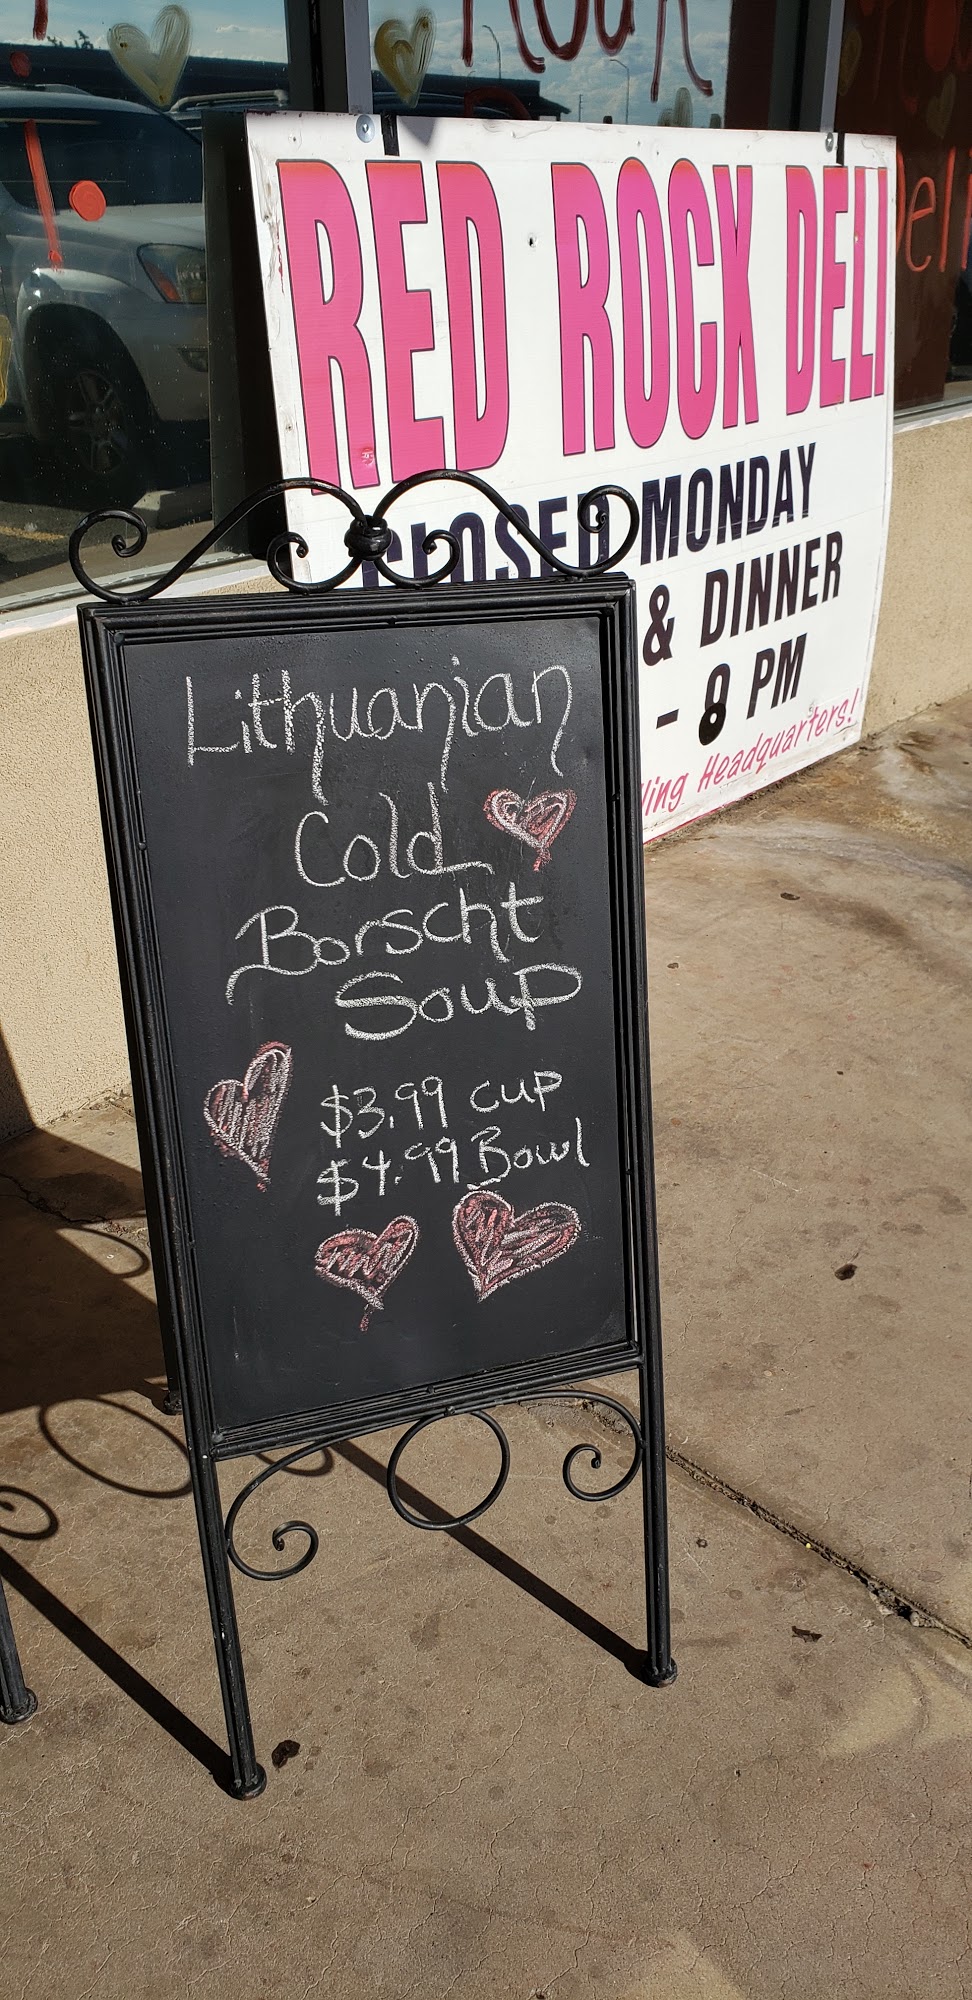 RED ROCK DELI
CLOSED MONDAY
& DINNER
- 8 PM
Headquarters!
Lithuanian
Cold
Borscht
Soup
$3.99 cup
$4.99 Bowl
Deli